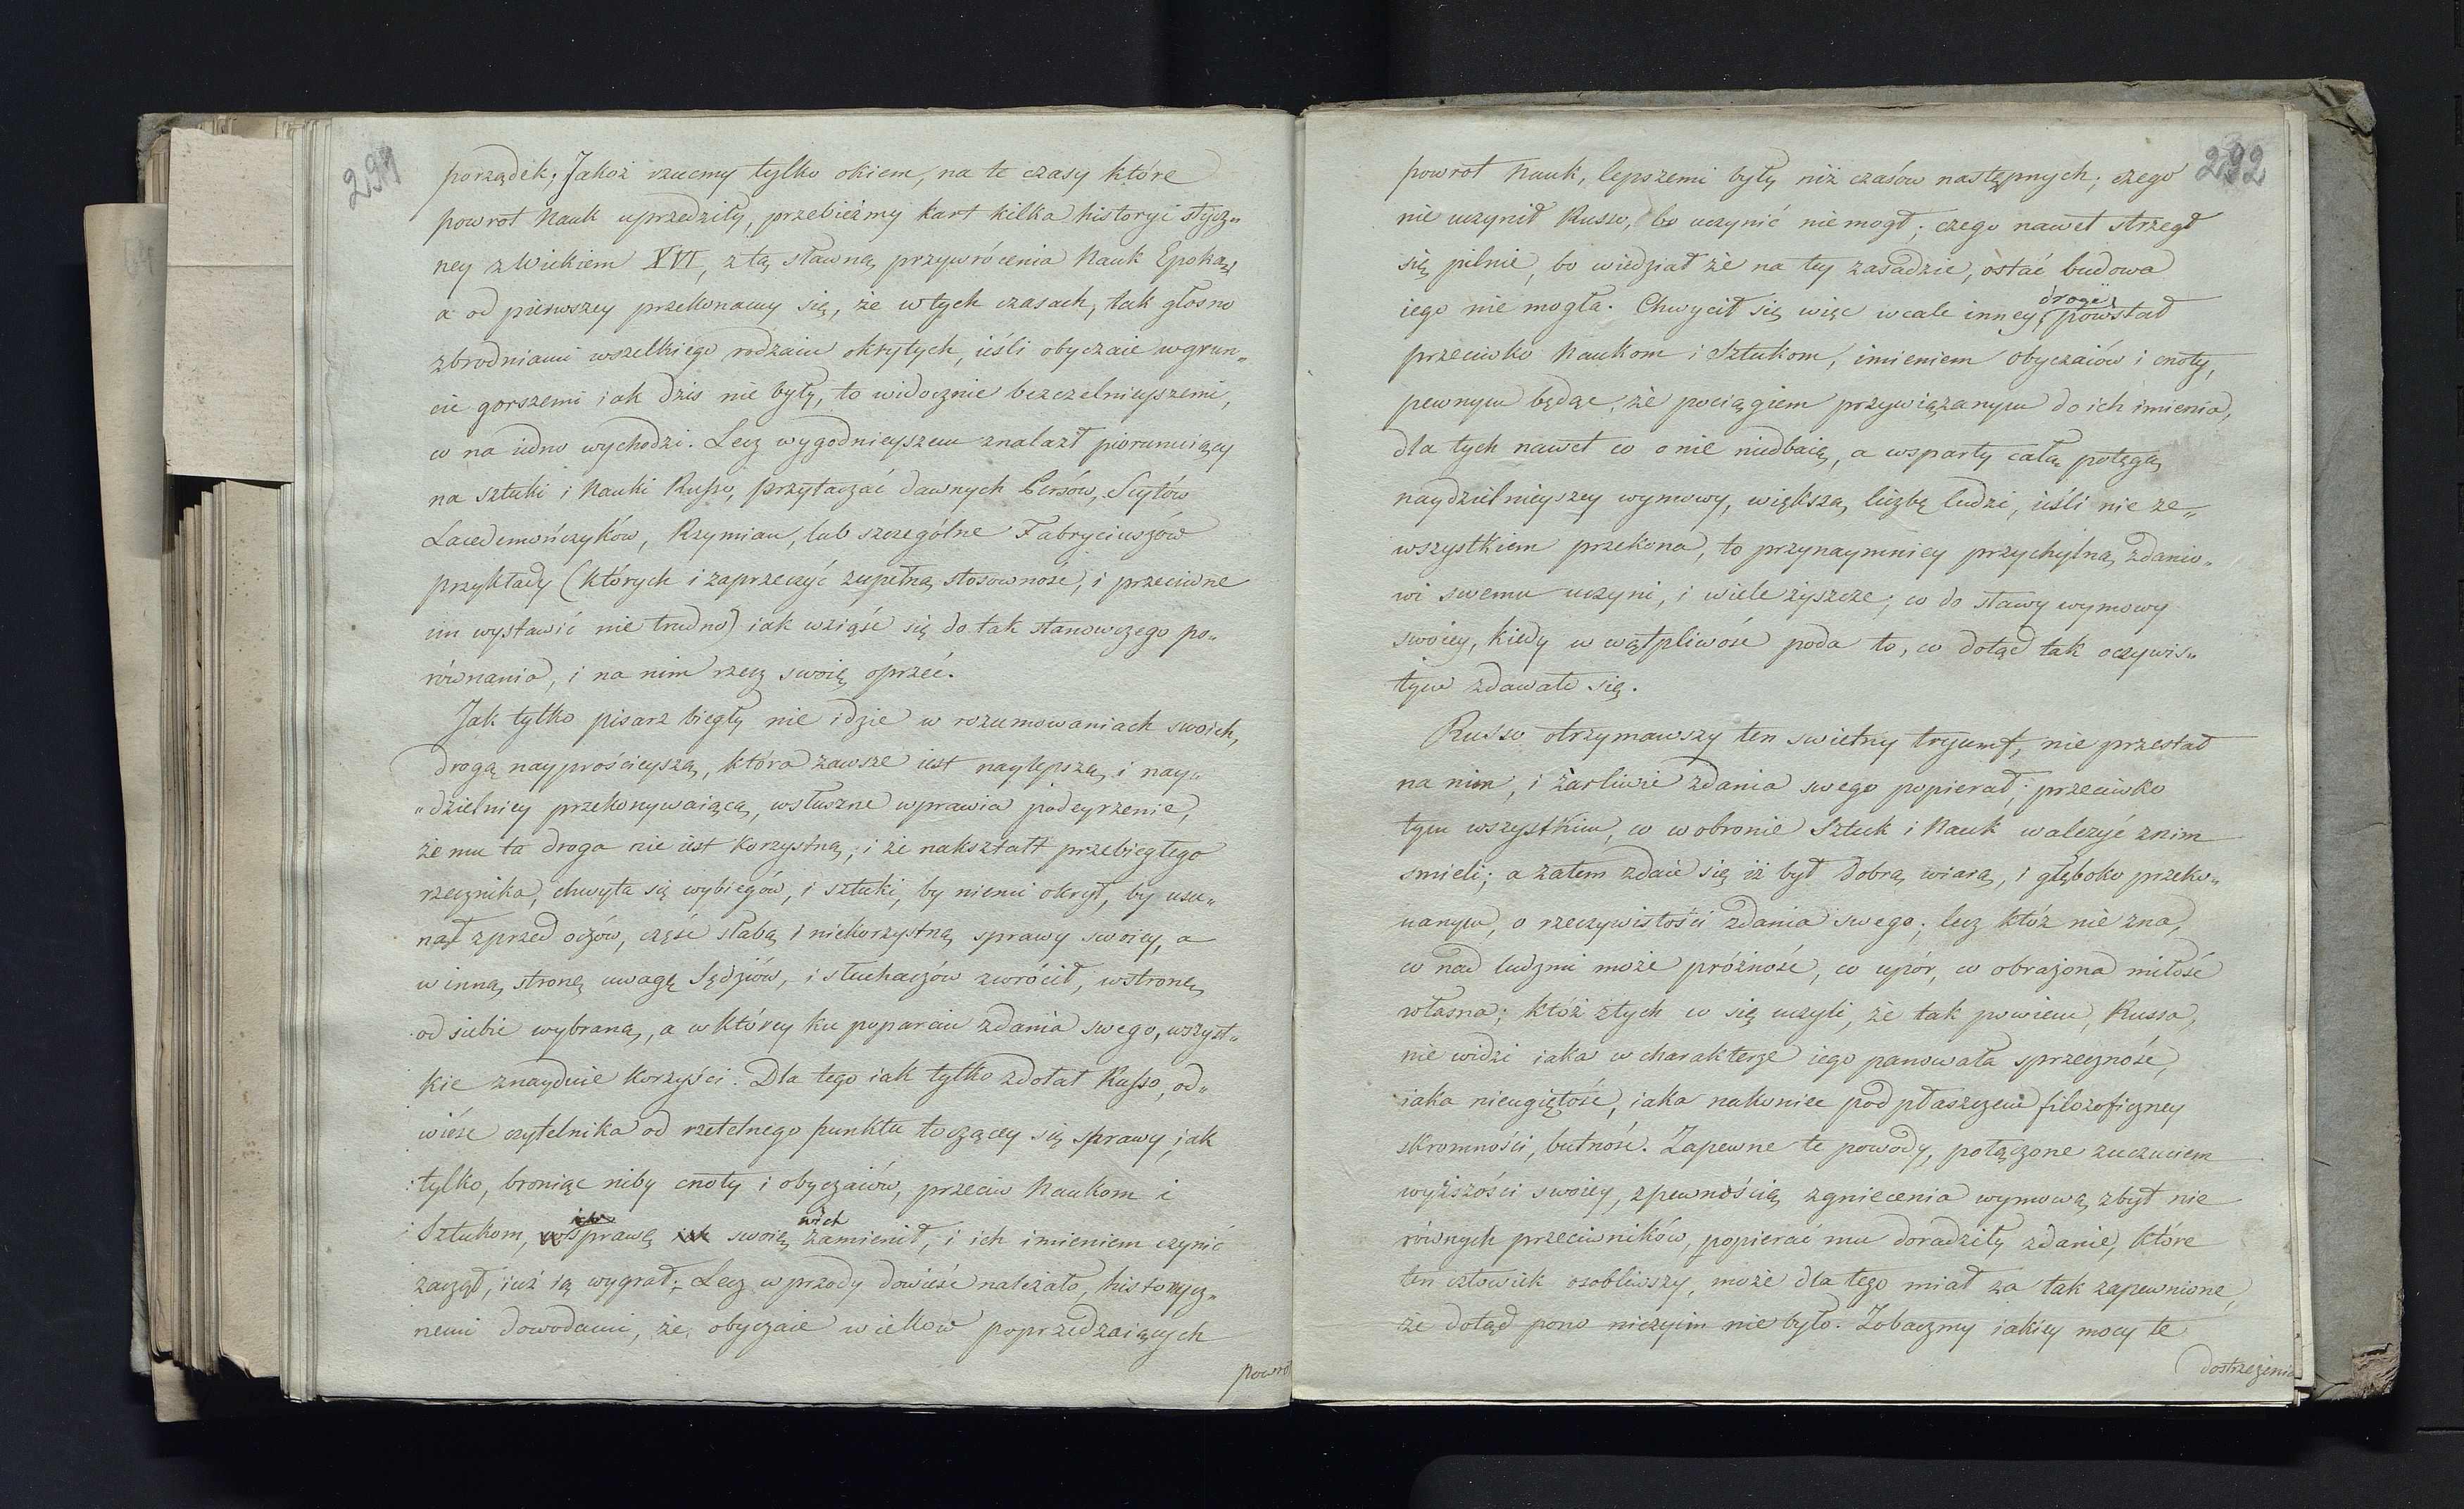 291
porządek; Jakoż rzućmy tylko okiem, na te czasy które
powrot Nauk uprzedziły, przebieżmy kart kilka historyi stycz„
ney z Wiekiem XVI, z tą sławną przywrócenia Nauk Epoką,
a od pierwszey przekonamy się, że w tych czasach, tak głosno
zbrodniami wszelkiego rodzaiu okrytych, ieśli obyczaie w grun„
cie gorszemi iak dzis nie były, to widocznie bezczelnieyszemi,
co na iedno wychodzi. Lecz wygodnieyszem znalazł piorunuiący
na sztuki i Nauki Russo, przytaczać dawnych Persów, Scytów
Lacedemończyków, Rzymian, lub szczególne Fabryciuszów
przykłady (których i zaprzeczyć zupełną stosowność, i przeciwne
im wystawić nie trudno) iak wziąść się do tak stanowczego po„
równania, i na nim rzecz swoię oprzéć.
Jak tylko pisarz biegły nie idzie w rozumowaniach swoich,
drogą nayprościeyszą, która zawsze iest naylepszą, i nay„
„dzielniey przekonywaiącą, w słuszne wprawia podeyrzenie,
że mu ta droga nie iest korzystną; i że nakształt przebiegłego
rzecznika, chwyta się wybiegów, i sztuki, by niemi okrył, by usu„
nął zprzed oczów, część słabą i niekorzystną sprawy swoiey, a
w inną stronę uwagę Sędziów, i słuchaczów zwrócił, w stronę
od siebie wybraną, a w którey ku poparciu zdania swego, wszyst„
kie znayduie korzyści. Dla tego iak tylko zdołał Russo, od„
wiéść czytelnika od rzetelnego punktu toczącey się sprawy, iak
tylko, broniąc niby cnoty i obyczaiów, przeciw Naukom i
Sztukom, sprawę swoię w ich zamienił, i ich imieniem czynić
zaczął, iuż ią wygrał; Lecz wprzody dowieść należało, historycz„
nemi dowodami, że obyczaie wieków poprzedzaiących
powrot
292
powrot Nauk, lepszemi były niż czasów następnych; czego
nie uczynił Russo, bo uczynić nie mogł; czego nawet strzegł
się pilnie, bo wiedział że na tey zasadzie, ostać budowa
iego nie mogła. Chwycił się więc wcale inney drogi, powstał
przeciwko Naukom i Sztukom, imieniem obyczaiów i cnoty,
pewnym będąc, że pociągiem przywiązanym do ich imienia,
dla tych nawet co o nie niedbaią, a wsparty całą potęgą
naydzielnieyszey wymowy, większą liczbę ludzi, ieśli nie ze„
wszystkiem przekona, to przynaymniey przychylną zdanio„
wi swemu uczyni, i wiele zyszcze; co do sławy wymowy
swoiey, kiedy w wątpliwość poda to, co dotąd tak oczywis„
tym zdawało się.
Russo otrzymawszy ten swietny tryumf, nie przestał
na nim, i żarliwie zdania swego popierał; przeciwko
tym wszystkim, co w obronie Sztuk i Nauk walczyć z nim
smieli; a zatem zdaie się iż był dobrą wiarą, i głęboko przeko„
nanym, o rzeczywistości zdania swego; lecz któż nie zna,
co nad ludzmi może próżność, co upór, co obrażona miłość
własna; któż z tych co się uczyli, że tak powiem, Russa,
nie widzi iaka w charakterze iego panowała sprzeczność,
iaka nieugiętość, iaka nakoniec pod płaszczem filozoficzney
skromności, butność. Zapewne te powody, połączone z uczuciem
wyższości swoiey, z pewnością zgniecenia wymową zbyt nie
równych przeciwników, popierać mu doradziły zdanie, które
ten człowiek osobliwszy, może dla tego miał za tak zapewnione,
że dotąd pono niczyim nie było. Zobaczmy iakiey mocy te
dostrzeżenia